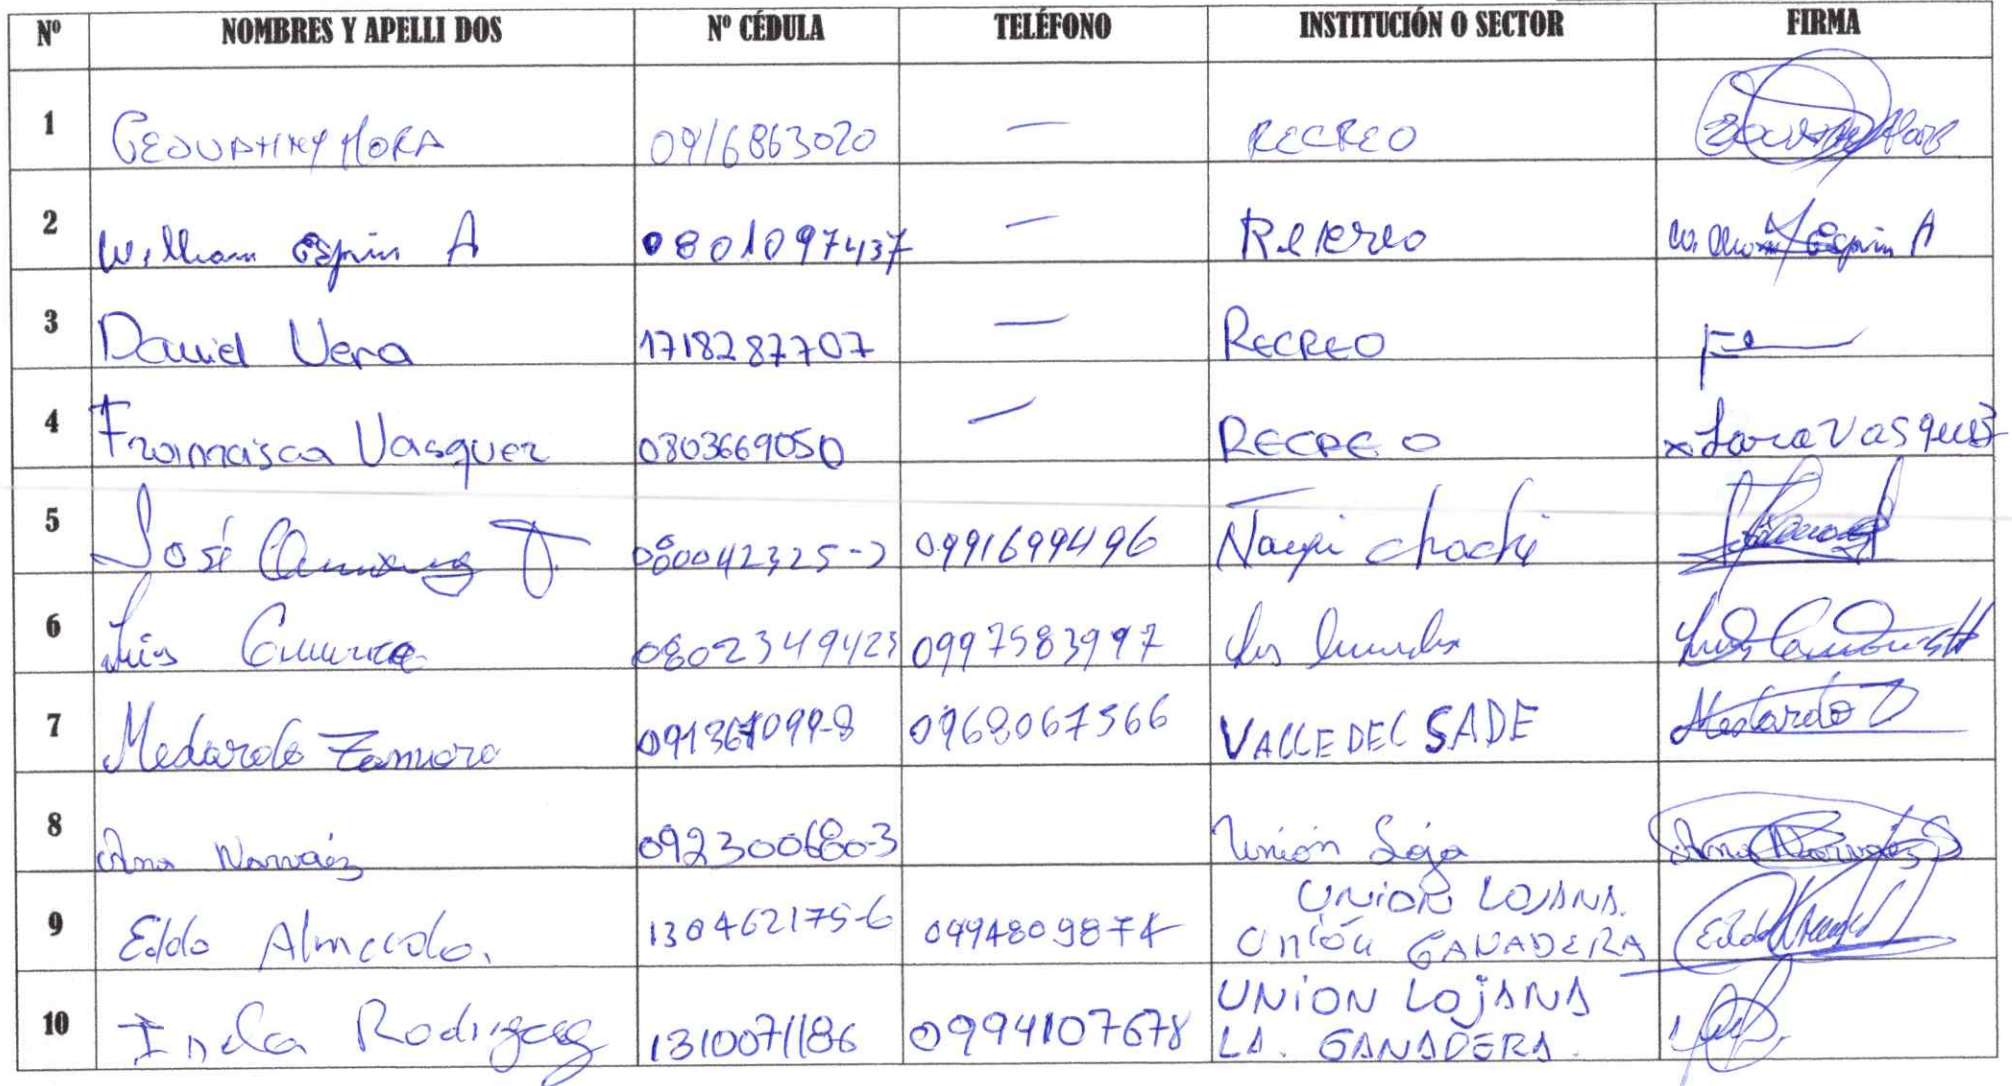 Nº NOMBRES Y APELLI DOS Nº CÉDULA TELÉFONO INSTITUCIÓN O SECTOR FIRMA
1 GEOVAHNY MORA 0916863020 — RECREO
2 William Espin A 0801097437 — Rekreo William Espin A
3 Daniel Vera 1718287707 — RECREO
4 Francisca Vasquez 0803669050 — RECREO x Sara Vasquez
5 José 080042325-2 0991699496 Naypi chachi
6 Luis 0802349423 0997583997
7 Medardo Zamora 091367099-8 0968067566 VALLE DEL SADE Medardo Z
8 Ana Narváez 092300680-3 Unión Loja Ana Narváez
9 Eldo Almeedo. 130462175-6 0994809874 UNION LOJANA. Unión GANADERA
10 Inda Rodrigez 1310071186 0994107678 UNION LOJANA LA. GANADERA.